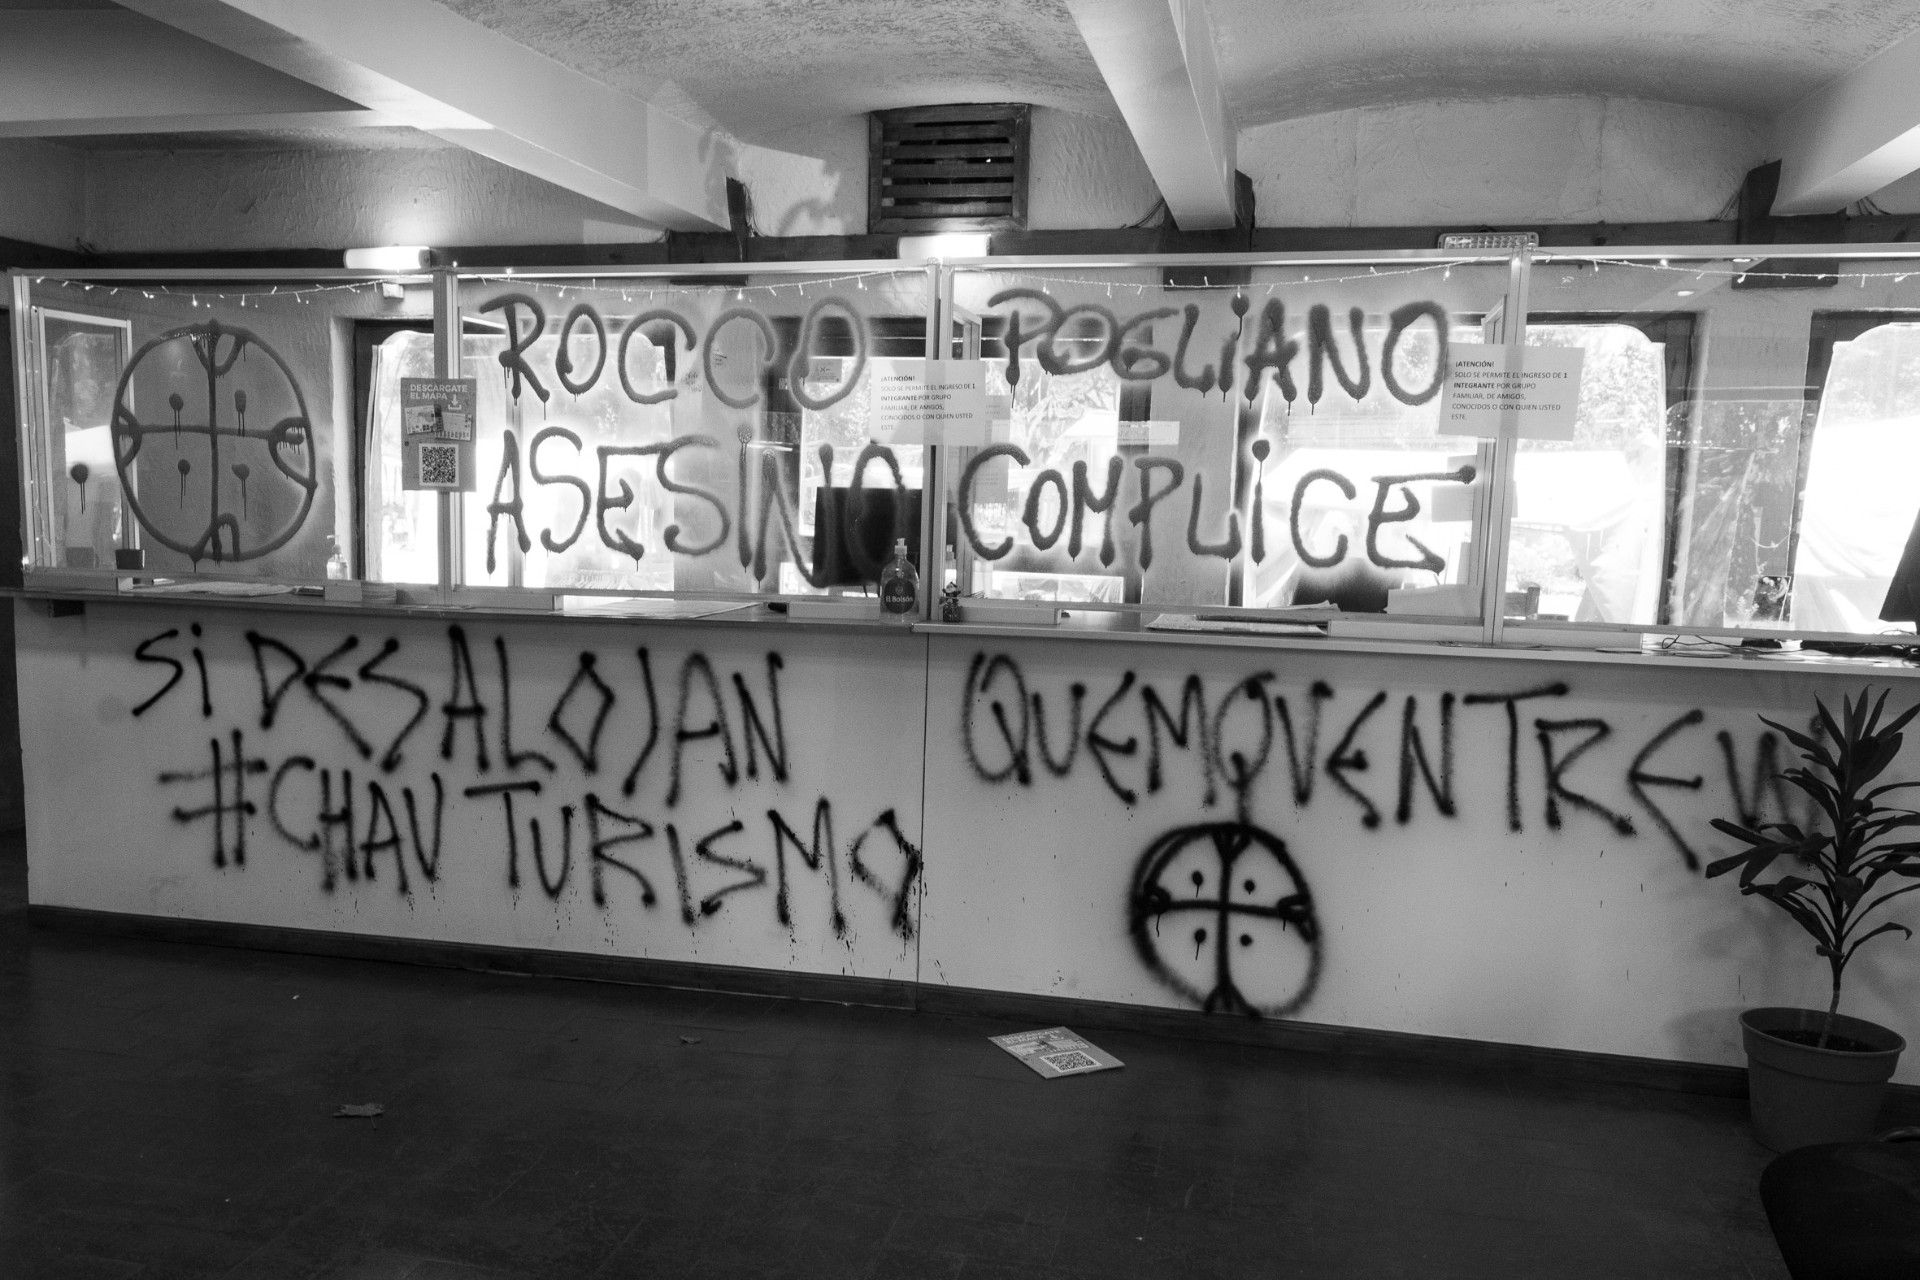 ROCCO POGLIANO
ASESINO COMPLICE
DESCARGATE
EL MAPA
¡ATENCIÓN!
SOLO SE PERMITE EL INGRESO DE 1
INTEGRANTE POR GRUPO
FAMILIAR, DE AMIGOS,
CONOCIDOS O CON QUIEN USTED
ESTE.
¡ATENCIÓN!
SOLO SE PERMITE EL INGRESO DE 1
INTEGRANTE POR GRUPO
FAMILIAR, DE AMIGOS,
CONOCIDOS O CON QUIEN USTED
ESTE.
El Bolsón
Si DESALOJAN
#CHAU TURISMO
QUEMQUEMTREW